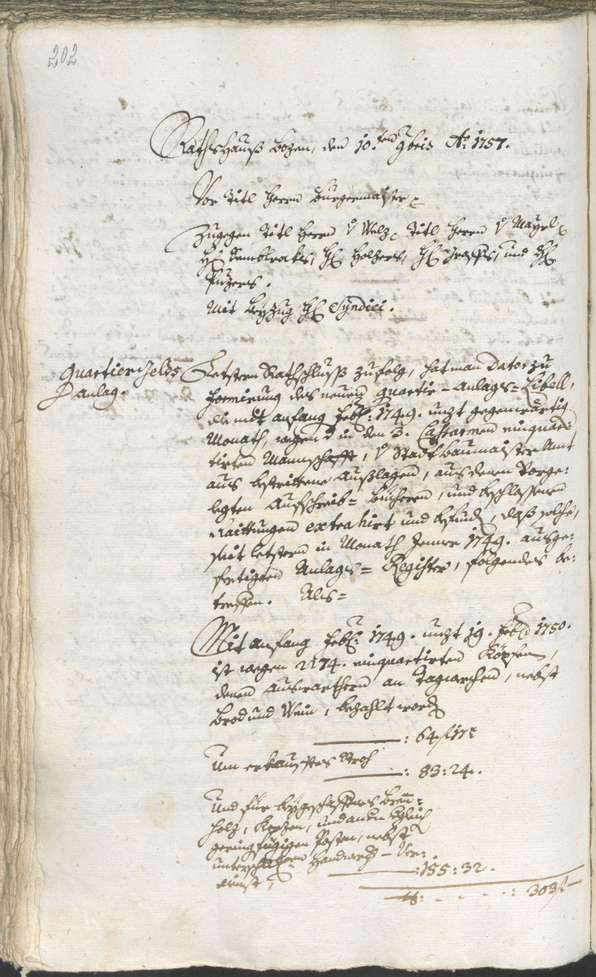 202
Rathshauß Bozen, den 10.ten 9bris Ao: 1757.
Vor Titl Herrn Burgermaister
Zugegen Titl Herrn v Welz, Titl Herrn v Mayrl
H: Holzers, und H:
Mit Beyzug H: Syndici.
Quartiergelds
Anlag.
Letstern Rathschluß zufolg, hat man dato, zu
formierung des neuen Quartier-Anlags-Libell,
mit anfang Febr: 1749. unzt gegenwärtig
Monath, wegen in den 3. Casarmen einquar-
tirten Mannschafft, v Stadtbaumaister Amt
aus bestrittene Außlagen, aus denen vorge-
legten Aufschreib-Büchern, und beschlossenen
Raittungen extrahirt und befunden, daß solche,
seit letstern in Monath Jenner 1749. ausge-
fertigten Anlags-Register, folgendes be-
treffen. Als=
Mit anfang Feb: 1749. unzt 19. Feb: 1750.
ist wegen 2174. einquartirten Köpfen,
denen Aufwarthern an Tagwerchen, nebst
Brod und Wein, bezahlt worden
: 64 f
Um erkaufftes Stroh
: 83:24.
Und für beygeschaffenes Bren-
holz, Kerzen, und anderen
geringfügigen Posten, nebst
unterschidlichen Handwerchs-Ver-
dienst,
: 155:32.
: 303 f